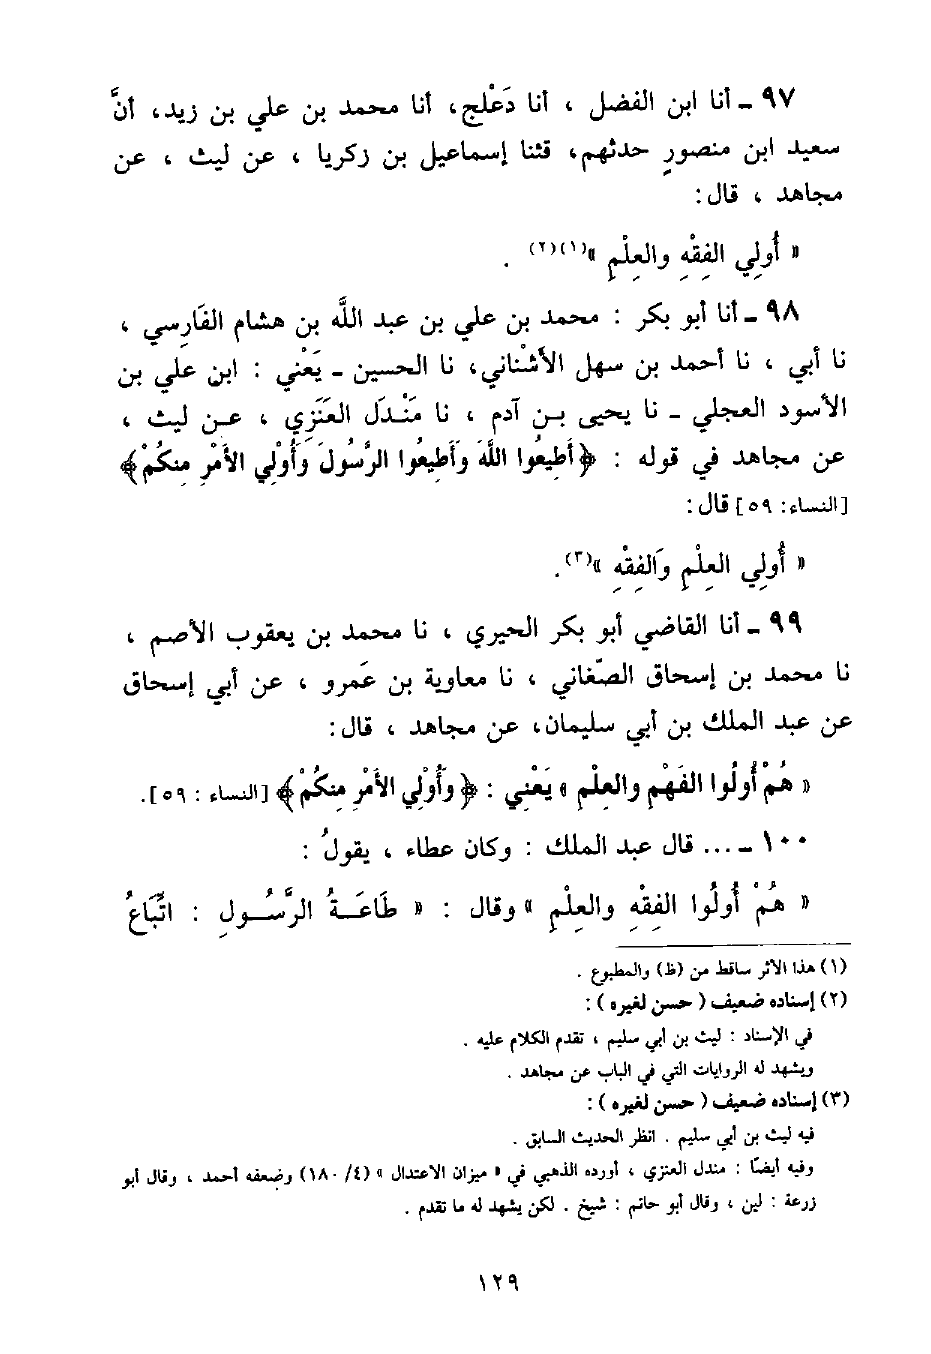 ٩٧ ـ أنا ابن الفضل ، أنا دَعْلج، أنا محمد بن علي بن زيد، أنَّ
سعيد ابن منصورٍ حدثهم، قثنا إسماعيل بن زكريا ، عن ليث ، عن
مجاهد ، قال:
« أُولِي الفِقْهِ والعِلْمِ »(١)(٢) .
٩٨ ـ أنا أبو بكر : محمد بن علي بن عبد اللَّه بن هشام الفَارِسي ،
نا أبي ، نا أحمد بن سهل الأشْناني، نا الحسين ـ يَعْني : ابن علي بن
الأسود العجلي ـ نا يحيى بن آدم ، نا مَنْدَل العَنَزِي ، عن ليث ،
عن مجاهد في قوله : ﴿أَطِيعُوا اللَّهَ وَأَطِيعُوا الرَّسُولَ وَأُولِي الأَمْرِ مِنكُمْ﴾
[النساء: ٥٩] قال:
« أُولِي العِلْمِ وَالفِقْهِ »(٣).
٩٩ ـ أنا القاضي أبو بكر الحيري ، نا محمد بن يعقوب الأصم ،
نا محمد بن إسحاق الصّغاني ، نا معاوية بن عَمرو ، عن أبي إسحاق
عن عبد الملك بن أبي سليمان، عن مجاهد ، قال:
« هُمْ أُولُوا الفَهْمِ والعِلْمِ » يَعْنِي : ﴿وَأُوْلِي الأَمْرِ مِنكُمْ﴾ [النساء : ٥٩].
١٠٠ ـ ... قال عبد الملك : وكان عطاء ، يقولُ :
« هُمْ أُولُوا الفِقْهِ والعِلْمِ » وقال : « طَاعَةُ الرَّسُولِ : اتِّبَاعُ
(١) هذا الأثر ساقط من (ظ) والمطبوع .
(٢) إسناده ضعيف ( حسن لغيره ) :
في الإسناد : ليث بن أبي سليم ، تقدم الكلام عليه .
ويشهد له الروايات التي في الباب عن مجاهد .
(٣) إسناده ضعيف ( حسن لغيره ) :
فيه ليث بن أبي سليم . انظر الحديث السابق .
وفيه أيضًا : مندل العنزي ، أورده الذهبي في « ميزان الاعتدال » (٤/ ١٨٠) وضعفه أحمد ، وقال أبو
زرعة : لين ، وقال أبو حاتم : شيخ . لكن يشهد له ما تقدم .
١٢٩